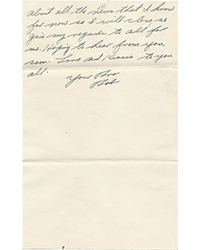 about all the news that I know
for now so I will close so
give my regards to all for
me. Hoping to hear from you
soon. Love and Kisses to you
all.
Your Bro
Bob